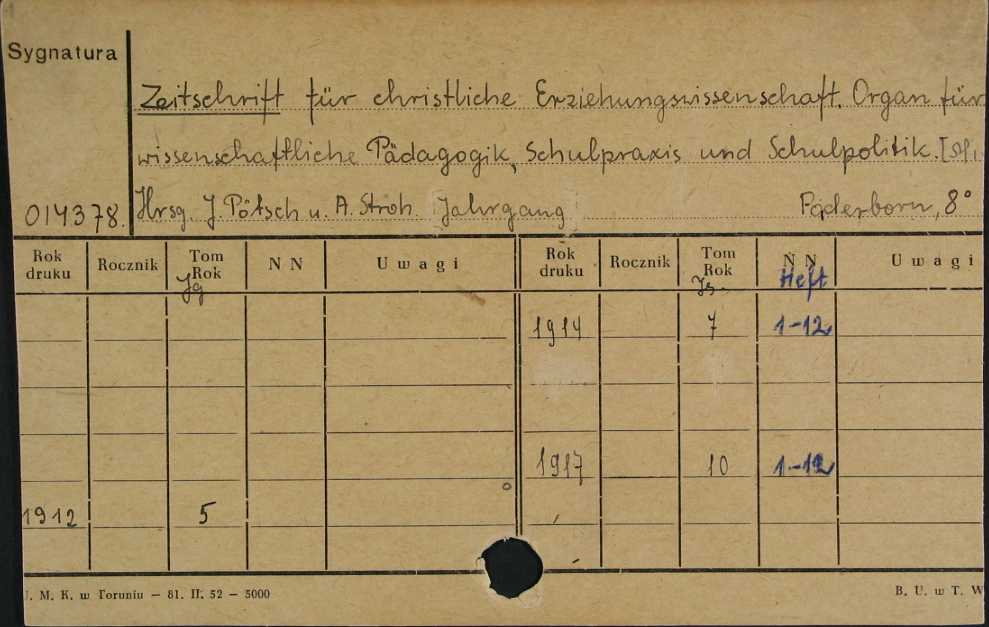 Sygnatura
Zeitschrift für christliche Erziehungswissenschaft. Organ für
wissenschaftliche Pädagogik, Schulpraxis und Schulpolitik.
014378. Hrsg. J. Pötsch u. A. Stroh. Jahrgang Paderborn, 8°
Rok druku Rocznik Tom Rok N N Uwagi Rok druku Rocznik Tom Rok N N Uwagi
Jg Jg. Heft
1914 7 1-12
1917 10 1-12
1912 5
. M. K. w Toruniu — 81. II. 52 — 5000 B. U. w T. W